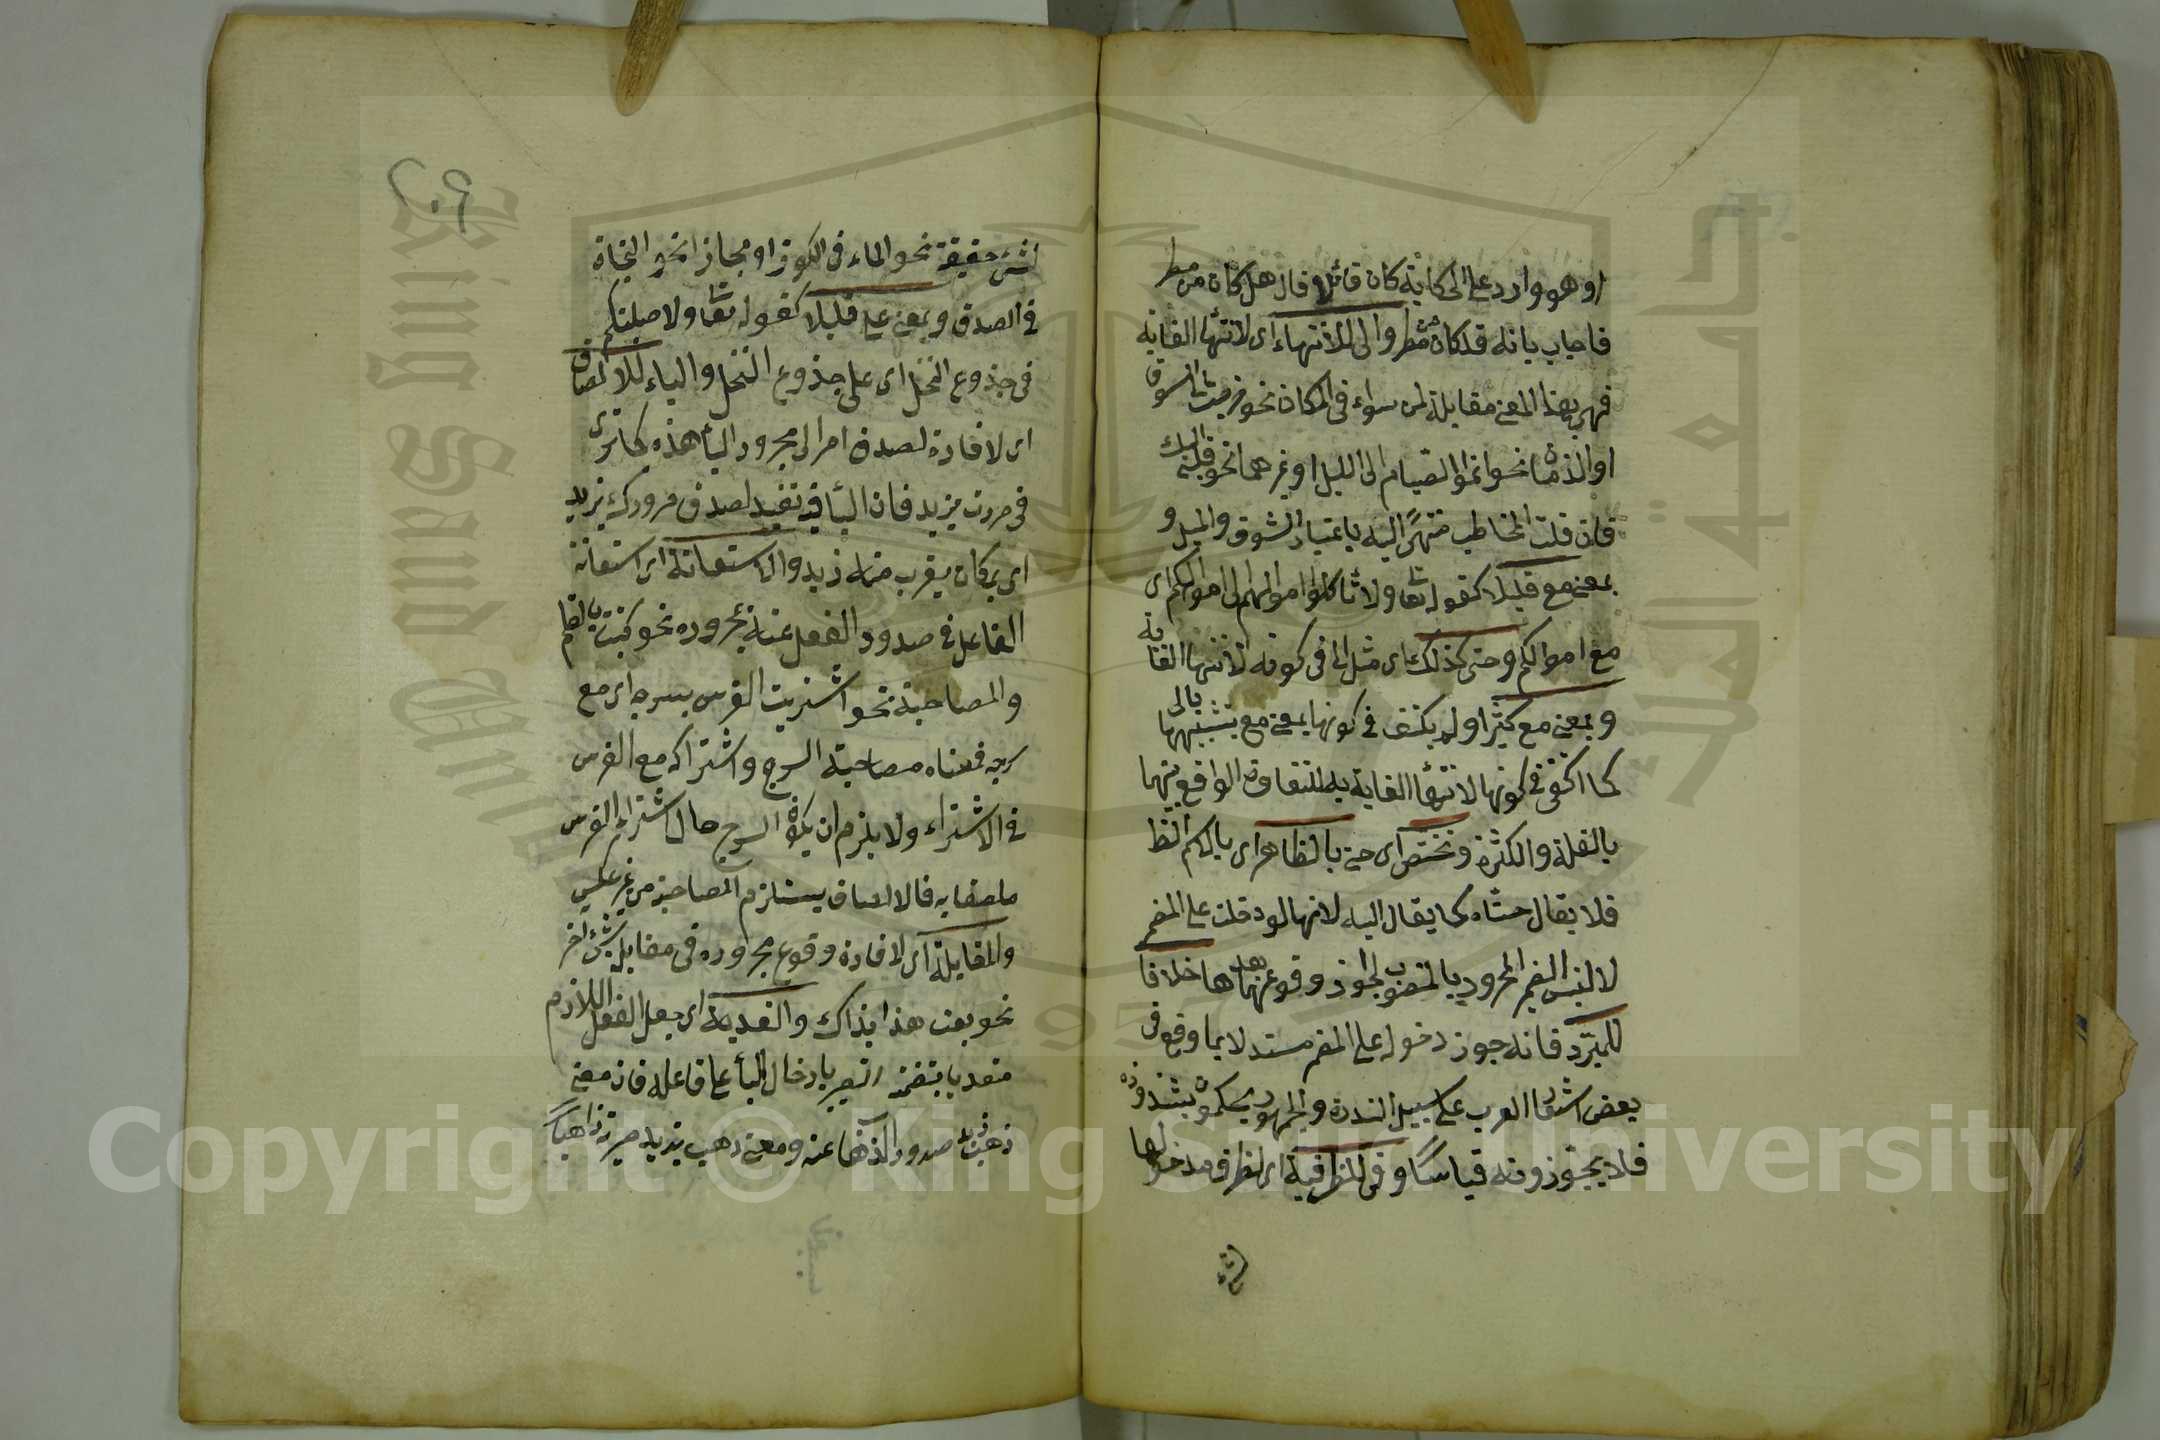 او هو وارد على الحكاية كان قائلا قال هل كان من مطر
فاجاب بانه قد كان من مطر والى للانتهاء اى لانتهاء الغاية
فهى بهذا المعنى مقابلة لمن سواء فى المكان نحو خرجت الى السوق
او الزمان نحو اتموا الصيام الى الليل او غيرهما نحو قلبى اليك
فان قلت المخاطب منتهى اليه باعتبار الشوق والميل و
بمعنى مع قليلا كقوله تعا ولا تأكلوا اموالهم الى اموالكم اى
مع اموالكم وحتى كذلك اى مثل الى فى كونه لانتهاء الغاية
و بمعنى مع كثيرا ولم يكتف فى كونها بمعنى مع بتشبيهها بالى
كما اكتفى فى كونها لانتهاء الغاية به للتفاوت الواقع بينهما
بالقلة والكثرة وتختص اى حتى بالظاهر اى بالاسم الظا
فلا يقال حتاه كما يقال اليه لانها لو دخلت على المضمر
لالتبس الضمير المجرور بالمنصوب لجواز وقوعهما بعدها خلافا
للمبرد فانه جوز دخوله على المضمر مستدلا بما وقع فى
بعض اشعار العرب على سبيل الندرة والجمهور يحكمون بشذوذه
فلا يجوزونه قياسا وفى للظرفية اى لظرفية مدخولها
لشئ
٢٠٩
لشئ حقيقة نحو الماء فى الكوز او مجازا نحو النجاة
فى الصدق وبمعنى على قليلا كقوله تعا ولاصلبنكم
فى جذوع النخل اى على جذوع النخل والباء للالصاق
اى لافادة لصوق امر الى مجرور الباء هذه كما ترى
فى مررت بزيد فان الباء فيه تفيد لصوق مرورك بزيد
اى بمكان يقرب منه زيد والاستعانة اى استعانة
الفاعل فى صدور الفعل عنه بمجروره نحو كتبت بالقلم
والمصاحبة نحو اشتريت الفرس بسرجه اى مع
سرجه فمعناه مصاحبة السرج واشتراكه مع الفرس
فى الاشتراء ولا يلزم ان يكون السرج حال اشتراء الفرس
ملصقا به فالالصاق يستلزم المصاحبة من غير عكس
والمقابلة اى لافادة وقوع مجروره فى مقابلة شئ اخر
نحو بعت هذا بذاك والتعدية اى جعل الفعل اللازم
متعديا بتضمنه التصيير بادخال الباء على فاعله فان معنى
ذهب زيد صدور الذهاب عنه ومعنى ذهبت بزيد صيرته ذاهبا
Copyright © King Saud University
King Saud University
جامعة الملك سعود
1957